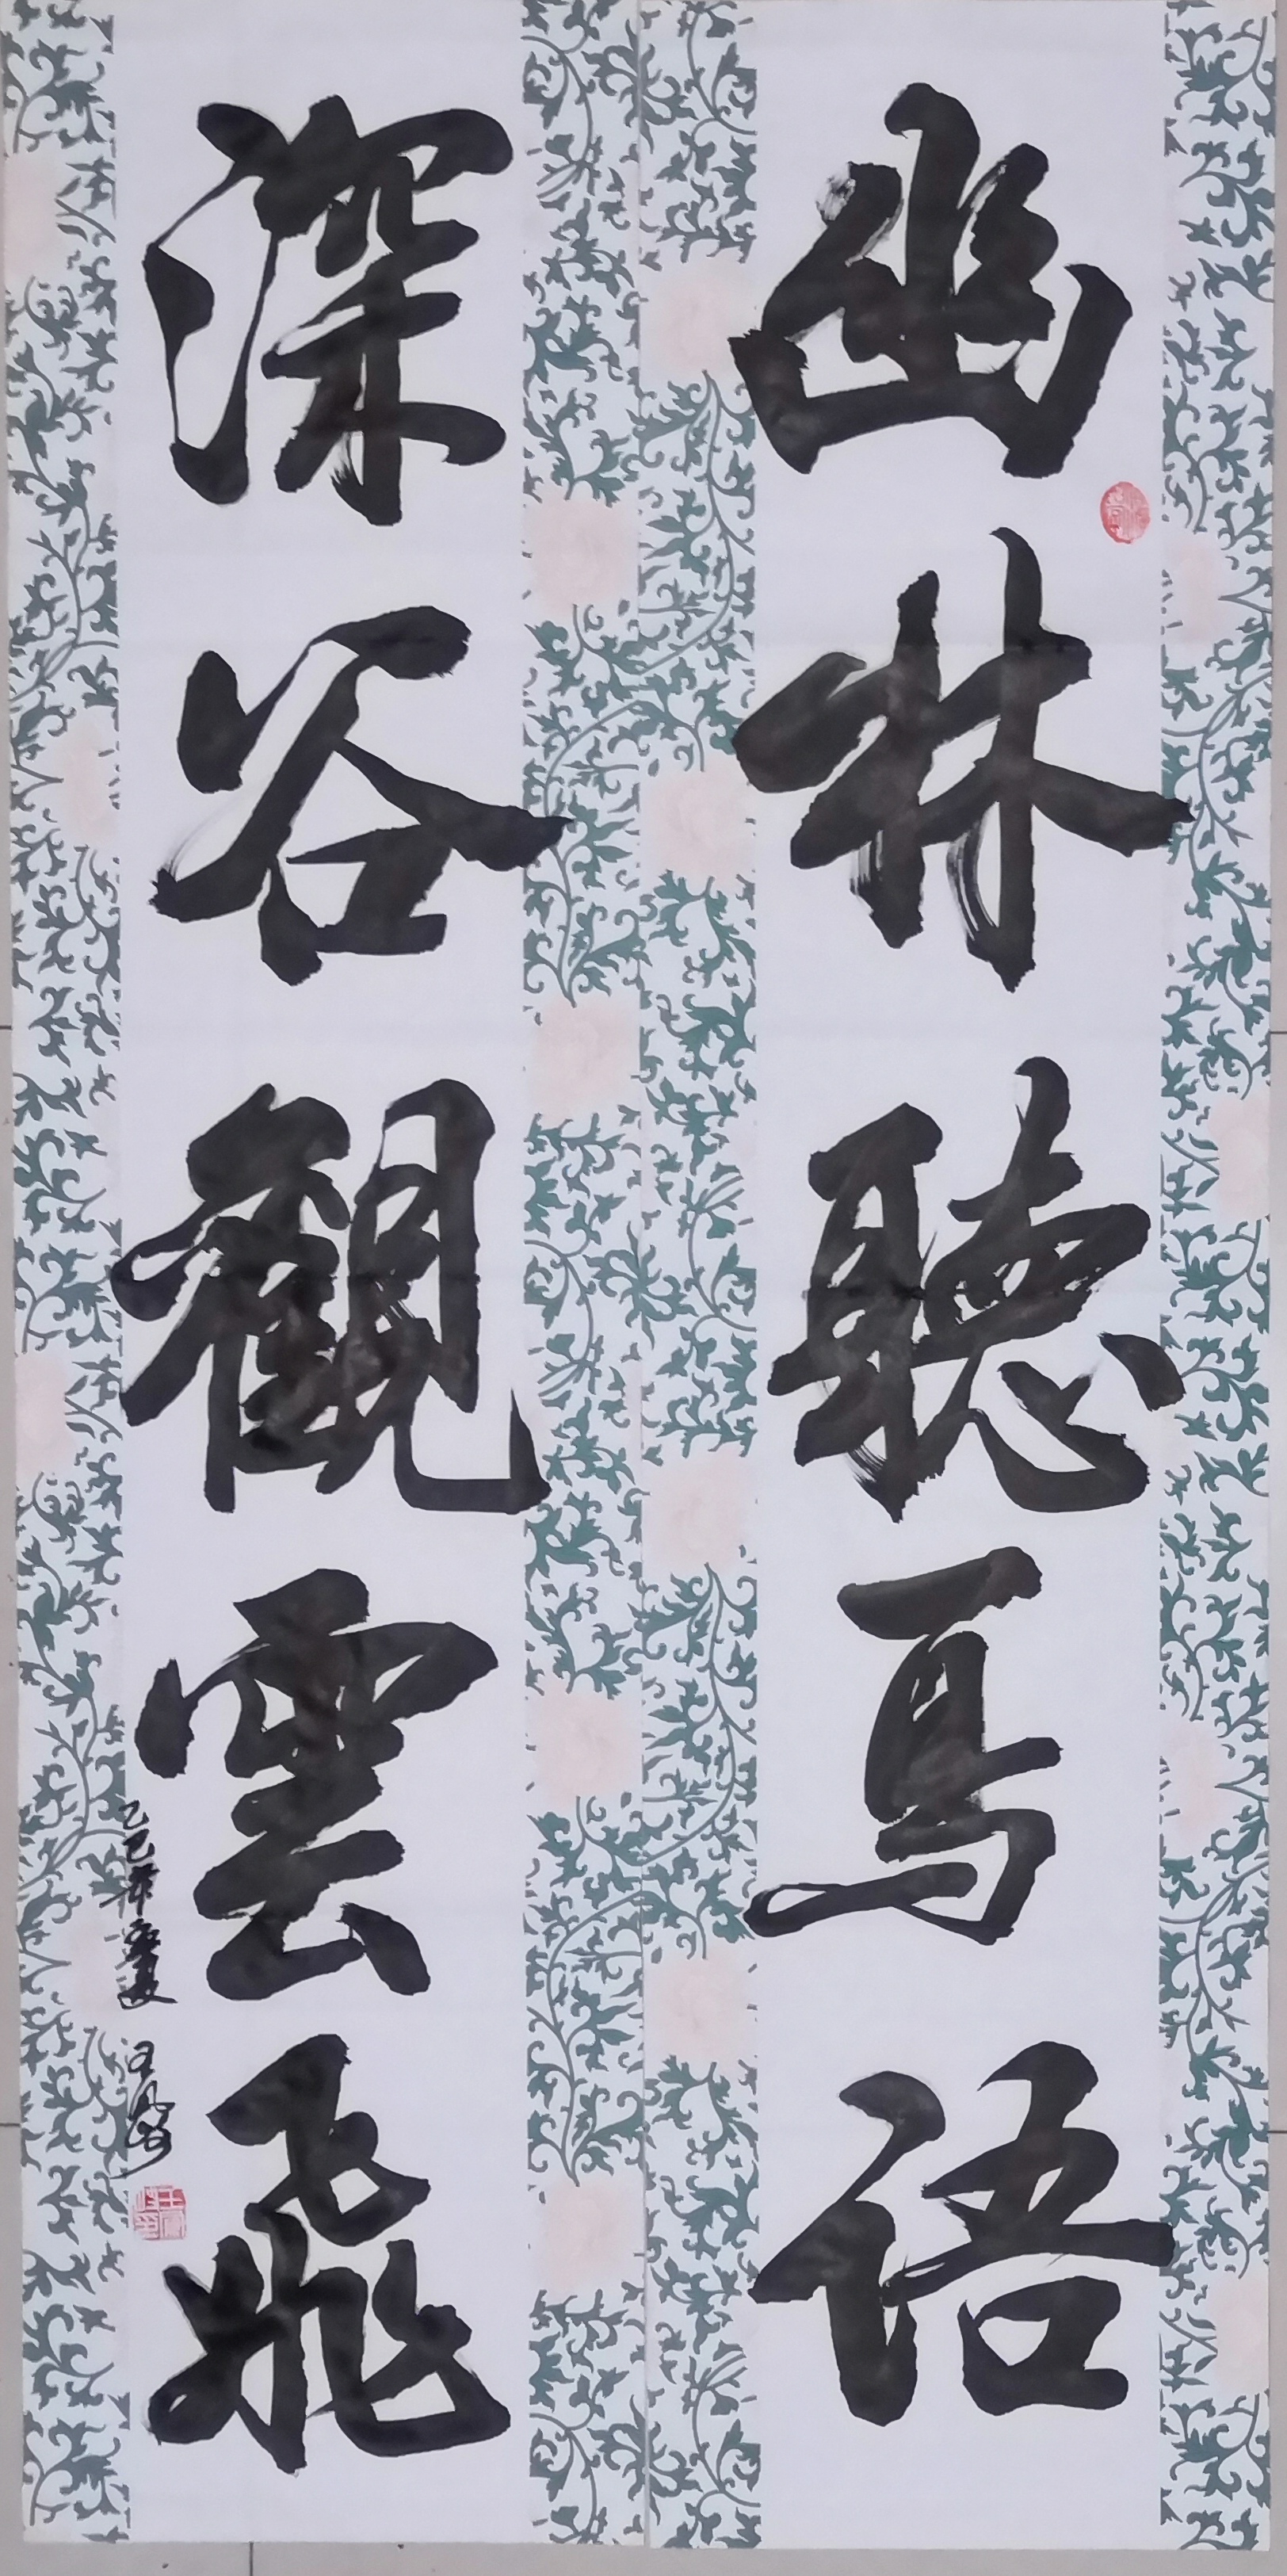 幽林聽鳥語
深谷觀雲飛
乙巳年盛夏